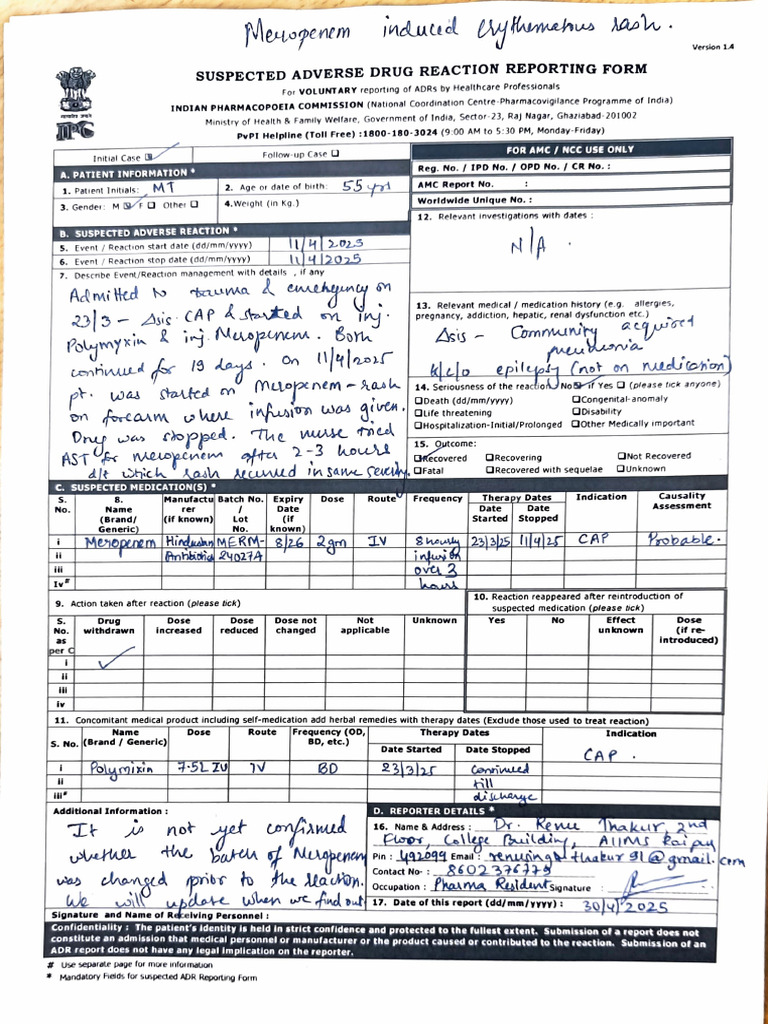 Meropenem induced erythematous rash.
Version 1.4
SUSPECTED ADVERSE DRUG REACTION REPORTING FORM
For VOLUNTARY reporting of ADRs by Healthcare Professionals
INDIAN PHARMACOPOEIA COMMISSION (National Coordination Centre-Pharmacovigilance Programme of India)
Ministry of Health & Family Welfare, Government of India, Sector-23, Raj Nagar, Ghaziabad-201002
PvPI Helpline (Toll Free) :1800-180-3024 (9:00 AM to 5:30 PM, Monday-Friday)
IPC
Initial Case ☑ Follow-up Case ☐
A. PATIENT INFORMATION *
1. Patient Initials: MT 2. Age or date of birth: 55 yrs
3. Gender: M ☑ F ☐ Other ☐ 4.Weight (in Kg.)
B. SUSPECTED ADVERSE REACTION *
5. Event / Reaction start date (dd/mm/yyyy) 11/4/2025
6. Event / Reaction stop date (dd/mm/yyyy) 11/4/2025
7. Describe Event/Reaction management with details , if any
Admitted to trauma & emergency on
23/3 - Δsis CAP & started on inj.
Polymyxin & inj. Meropenem. Both
continued for 19 days. On 11/4/2025
pt. was started on Meropenem - rash
on forearm where infusion was given.
Drug was stopped. The nurse tried
AST for meropenem after 2-3 hours
d/t which rash recurred in same severity.
FOR AMC / NCC USE ONLY
Reg. No. / IPD No. / OPD No. / CR No. :
AMC Report No. :
Worldwide Unique No. :
12. Relevant investigations with dates :
N/A.
13. Relevant medical / medication history (e.g. allergies,
pregnancy, addiction, hepatic, renal dysfunction etc.)
Δsis - Community acquired
pneumonia
k/c/o epilepsy (not on medication)
14. Seriousness of the reaction: No ☑ if Yes ☐ (please tick anyone)
☐Death (dd/mm/yyyy) ☐Congenital-anomaly
☐Life threatening ☐Disability
☐Hospitalization-Initial/Prolonged ☐Other Medically important
15. Outcome:
☑Recovered ☐Recovering ☐Not Recovered
☐Fatal ☐Recovered with sequelae ☐Unknown
C. SUSPECTED MEDICATION(S) *
S. No. 8. Name (Brand/ Generic) Manufacturer (if known) Batch No. / Lot No. Expiry Date (if known) Dose Route Frequency Therapy Dates Date Started Date Stopped Indication Causality Assessment
i Meropenem Hindustan Antibiotics MERM-24027A 8/26 2gm IV 8 hourly infusion over 3 hours 23/3/25 11/4/25 CAP Probable.
ii
iii
iv#
9. Action taken after reaction (please tick)
S. No. as per C Drug withdrawn Dose increased Dose reduced Dose not changed Not applicable Unknown
i ✓
ii
iii
iv
10. Reaction reappeared after reintroduction of
suspected medication (please tick)
Yes No Effect unknown Dose (if re-introduced)
11. Concomitant medical product including self-medication and herbal remedies with therapy dates (Exclude those used to treat reaction)
S. No. Name (Brand / Generic) Dose Route Frequency (OD, BD, etc.) Therapy Dates Date Started Date Stopped Indication
i Polymixin 7.5L IU IV BD 23/3/25 continued till discharge CAP.
ii
iii#
Additional Information :
It is not yet confirmed
whether the batch of Meropenem
was changed prior to the reaction.
We will update when we find out
D. REPORTER DETAILS *
16. Name & Address : Dr. Renu Thakur, 2nd
Floor, College Building, AIIMS Raipur
Pin : 492099 Email : renusinghthakur91@gmail.com
Contact No- : 8602376779
Occupation : Pharma Resident Signature :
17. Date of this report (dd/mm/yyyy) : 30/4/2025
Signature and Name of Receiving Personnel :
Confidentiality : The patient's identity is held in strict confidence and protected to the fullest extent. Submission of a report does not
constitute an admission that medical personnel or manufacturer or the product caused or contributed to the reaction. Submission of an
ADR report does not have any legal implication on the reporter.
# Use separate page for more information
* Mandatory Fields for suspected ADR Reporting Form